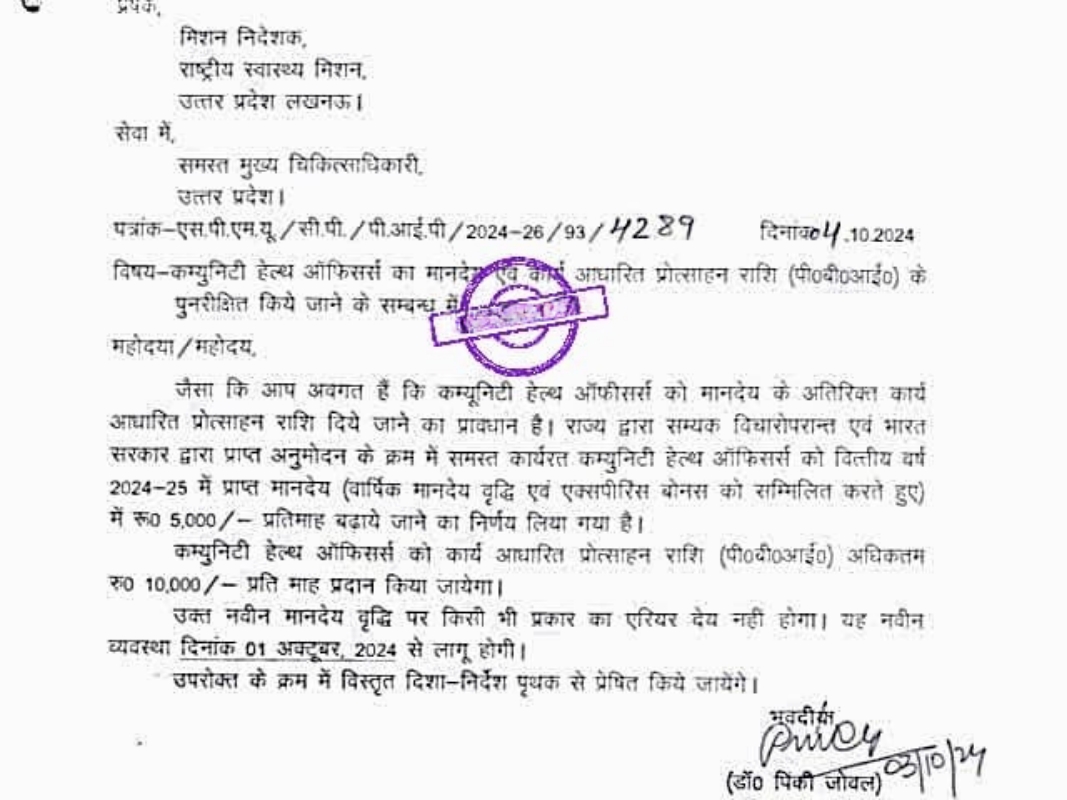 प्रेषक,
मिशन निदेशक,
राष्ट्रीय स्वास्थ्य मिशन,
उत्तर प्रदेश लखनऊ।
सेवा में,
समस्त मुख्य चिकित्साधिकारी,
उत्तर प्रदेश।
पत्रांक–एस.पी.एम.यू./सी.पी./पी.आई.पी/2024-26/93/4289 दिनांक 04.10.2024
विषय–कम्युनिटी हेल्थ ऑफिसर्स का मानदेय एवं कार्य आधारित प्रोत्साहन राशि (पी0बी0आई0) के
पुनरीक्षित किये जाने के सम्बन्ध में
महोदया/महोदय,
जैसा कि आप अवगत हैं कि कम्यूनिटी हेल्थ ऑफीसर्स को मानदेय के अतिरिक्त कार्य
आधारित प्रोत्साहन राशि दिये जाने का प्रावधान है। राज्य द्वारा सम्यक विचारोपरान्त एवं भारत
सरकार द्वारा प्राप्त अनुमोदन के क्रम में समस्त कार्यरत कम्युनिटी हेल्थ ऑफिसर्स को वित्तीय वर्ष
2024-25 में प्राप्त मानदेय (वार्षिक मानदेय वृद्धि एवं एक्सपीरिंस बोनस को सम्मिलित करते हुए)
में रू0 5,000/– प्रतिमाह बढ़ाये जाने का निर्णय लिया गया है।
कम्युनिटी हेल्थ ऑफिसर्स को कार्य आधारित प्रोत्साहन राशि (पी0बी0आई0) अधिकतम
रु0 10,000/– प्रति माह प्रदान किया जायेगा।
उक्त नवीन मानदेय वृद्धि पर किसी भी प्रकार का एरियर देय नही होगा। यह नवीन
व्यवस्था दिनांक 01 अक्टूबर, 2024 से लागू होगी।
उपरोक्त के क्रम में विस्तृत दिशा–निर्देश पृथक से प्रेषित किये जायेंगे।
भवदीया
03/10/24
(डॉ0 पिंकी जोवल)